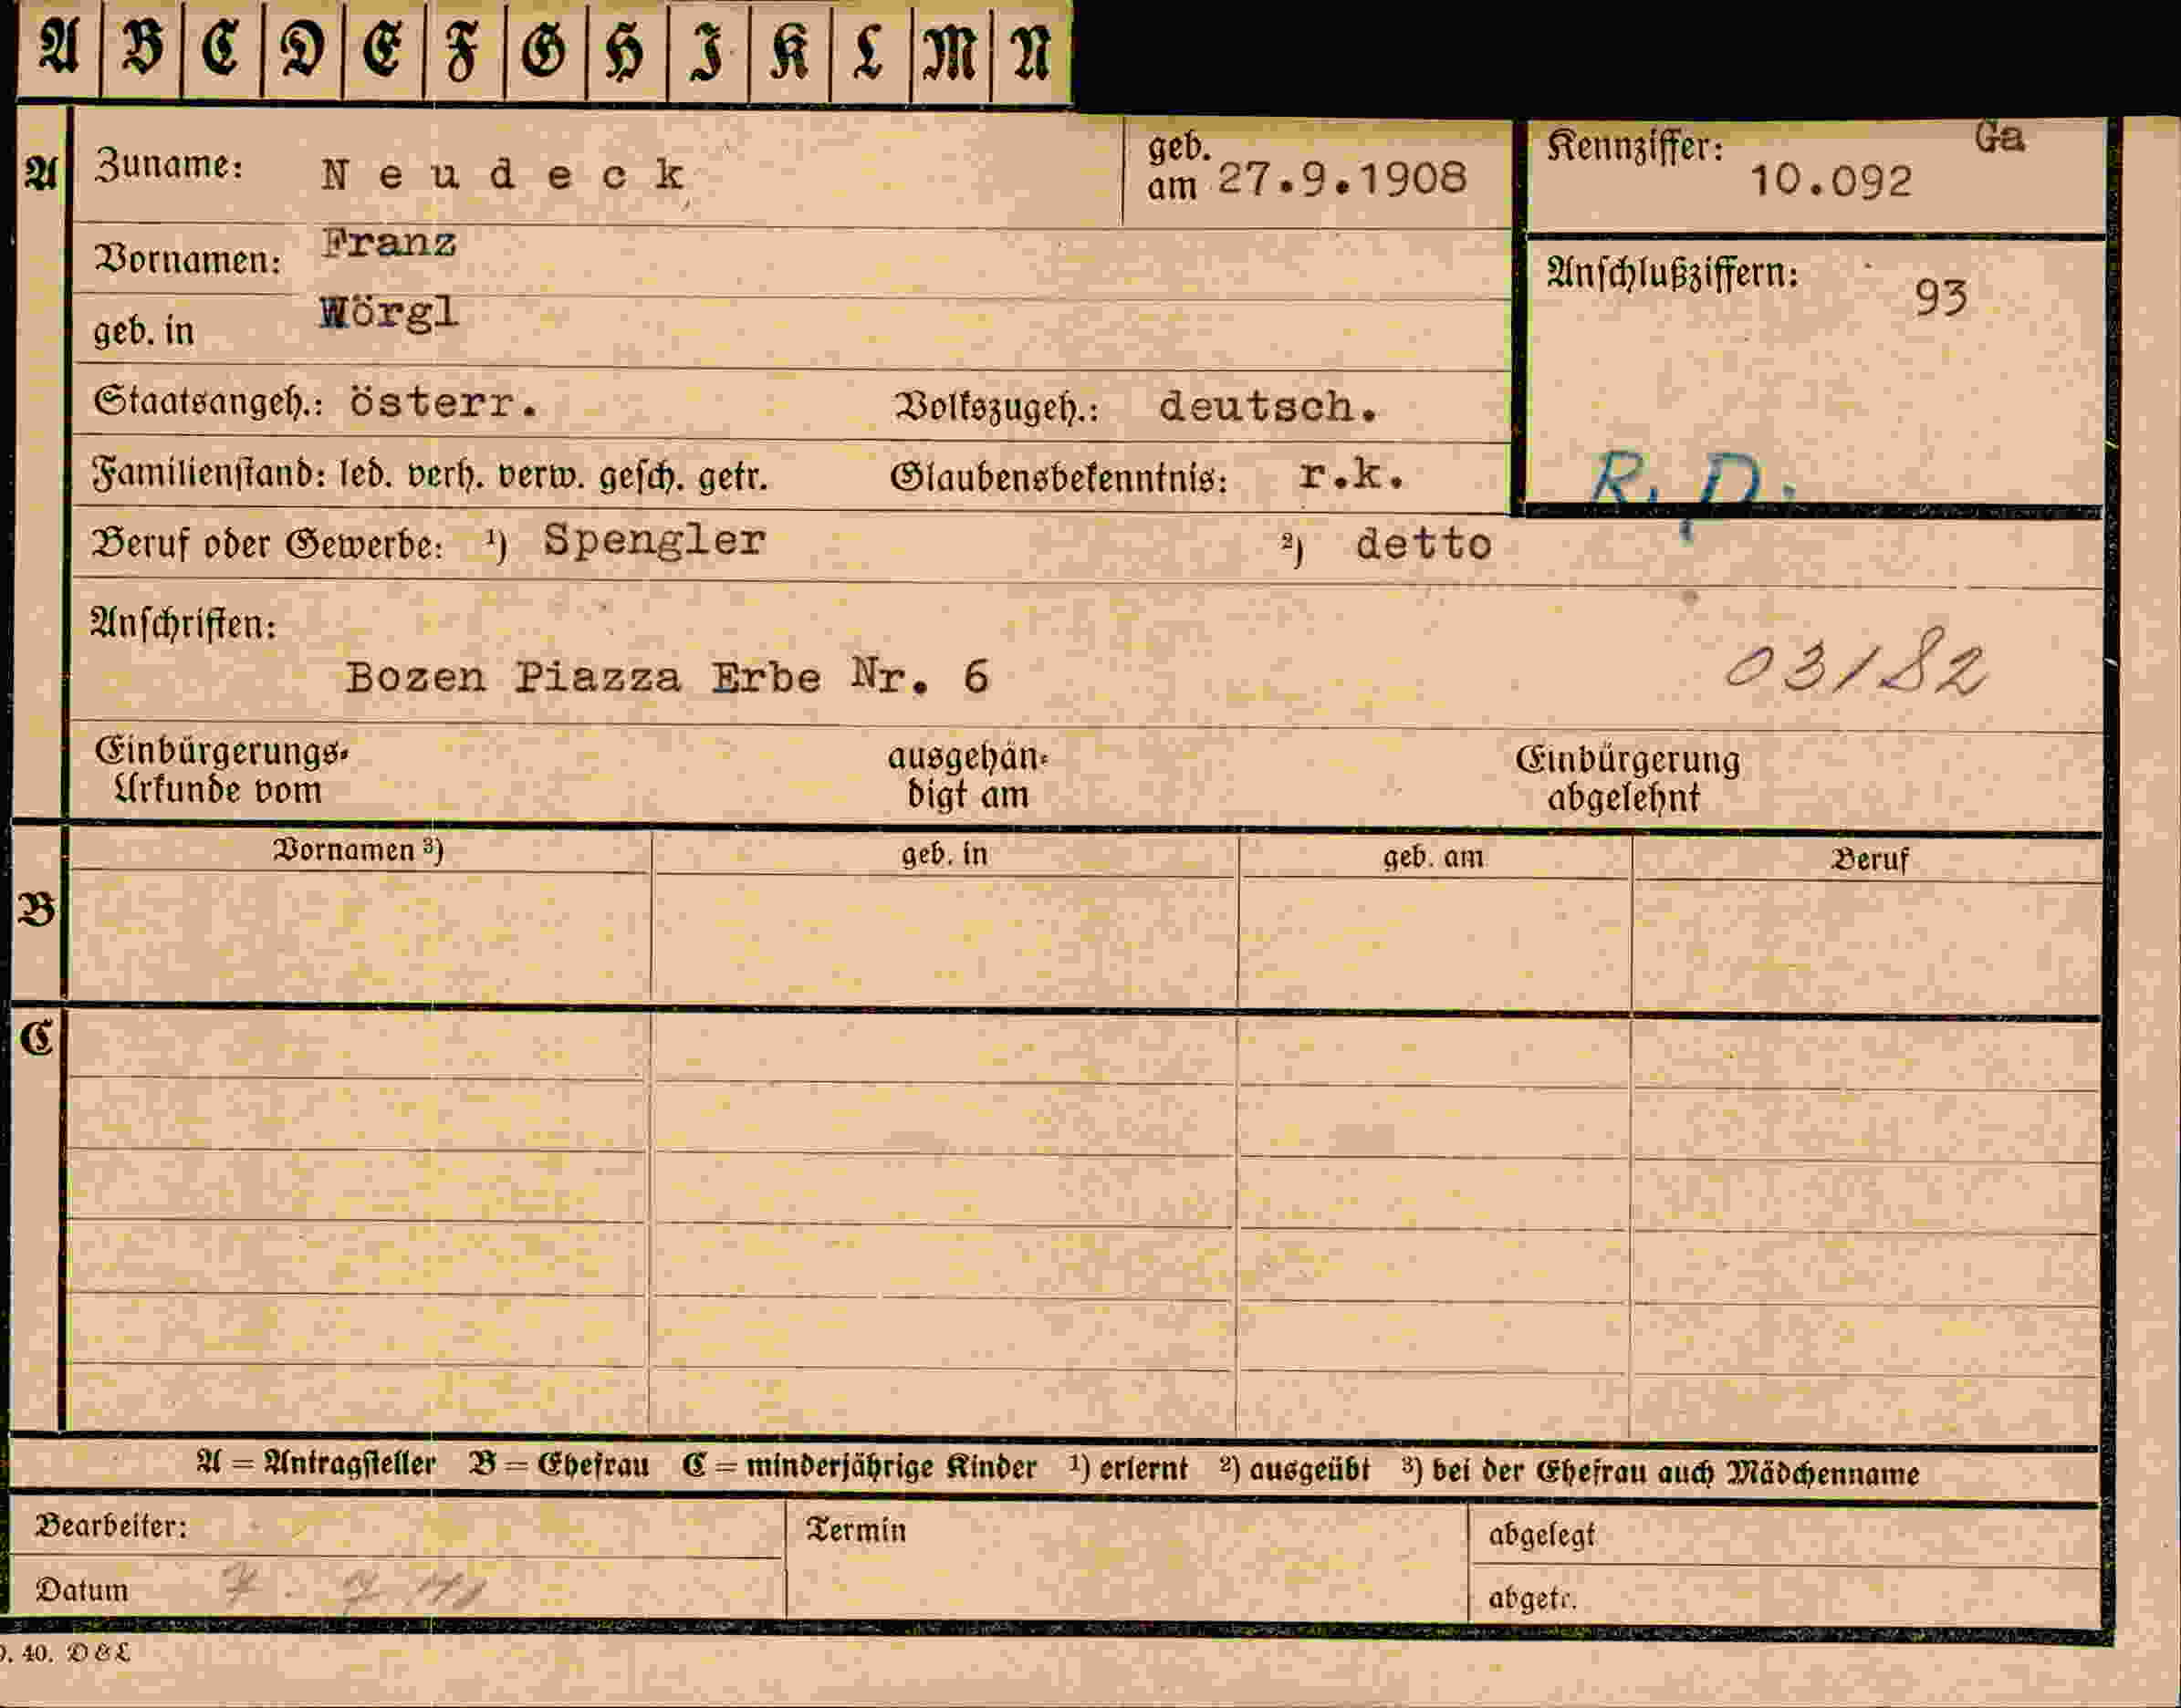 A B C D E F G H I K L M N
A Zuname: Neudeck geb. am 27.9.1908 Kennziffer: 10.092 Ga
Vornamen: Franz
geb. in Wörgl Anschlußziffern: 93
Staatsangeh.: österr. Volkszugeh.: deutsch.
Familienstand: led. verh. verw. gesch. getr. Glaubensbekenntnis: r.k. R. D.
Beruf oder Gewerbe: ¹) Spengler ²) detto
Anschriften:
Bozen Piazza Erbe Nr. 6 03182
Einbürgerungs-Urkunde vom ausgehändigt am Einbürgerung abgelehnt
Vornamen ³) geb. in geb. am Beruf
B
C
A = Antragsteller B = Ehefrau C = minderjährige Kinder ¹) erlernt ²) ausgeübt ³) bei der Ehefrau auch Mädchenname
Bearbeiter: Termin abgelegt
Datum 7. 7 41 abgetr.
40. D&L